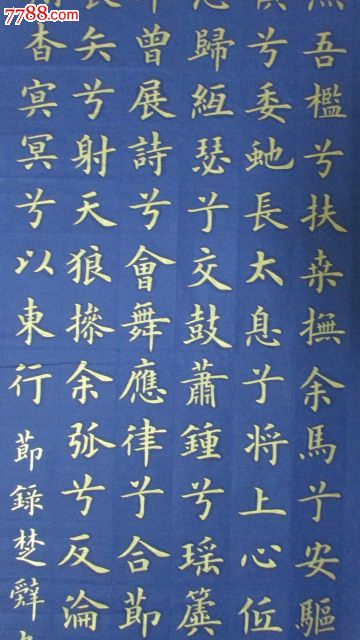 7788.com
吾檻兮扶桒撫余馬兮安驅
兮委虵長太息兮将上心低
歸絚瑟兮交鼓蕭鍾兮瑶簴
曾展詩兮會舞應律兮合節
矢兮射天狼操余弧兮反淪
杳冥冥兮以東行 節録楚辭